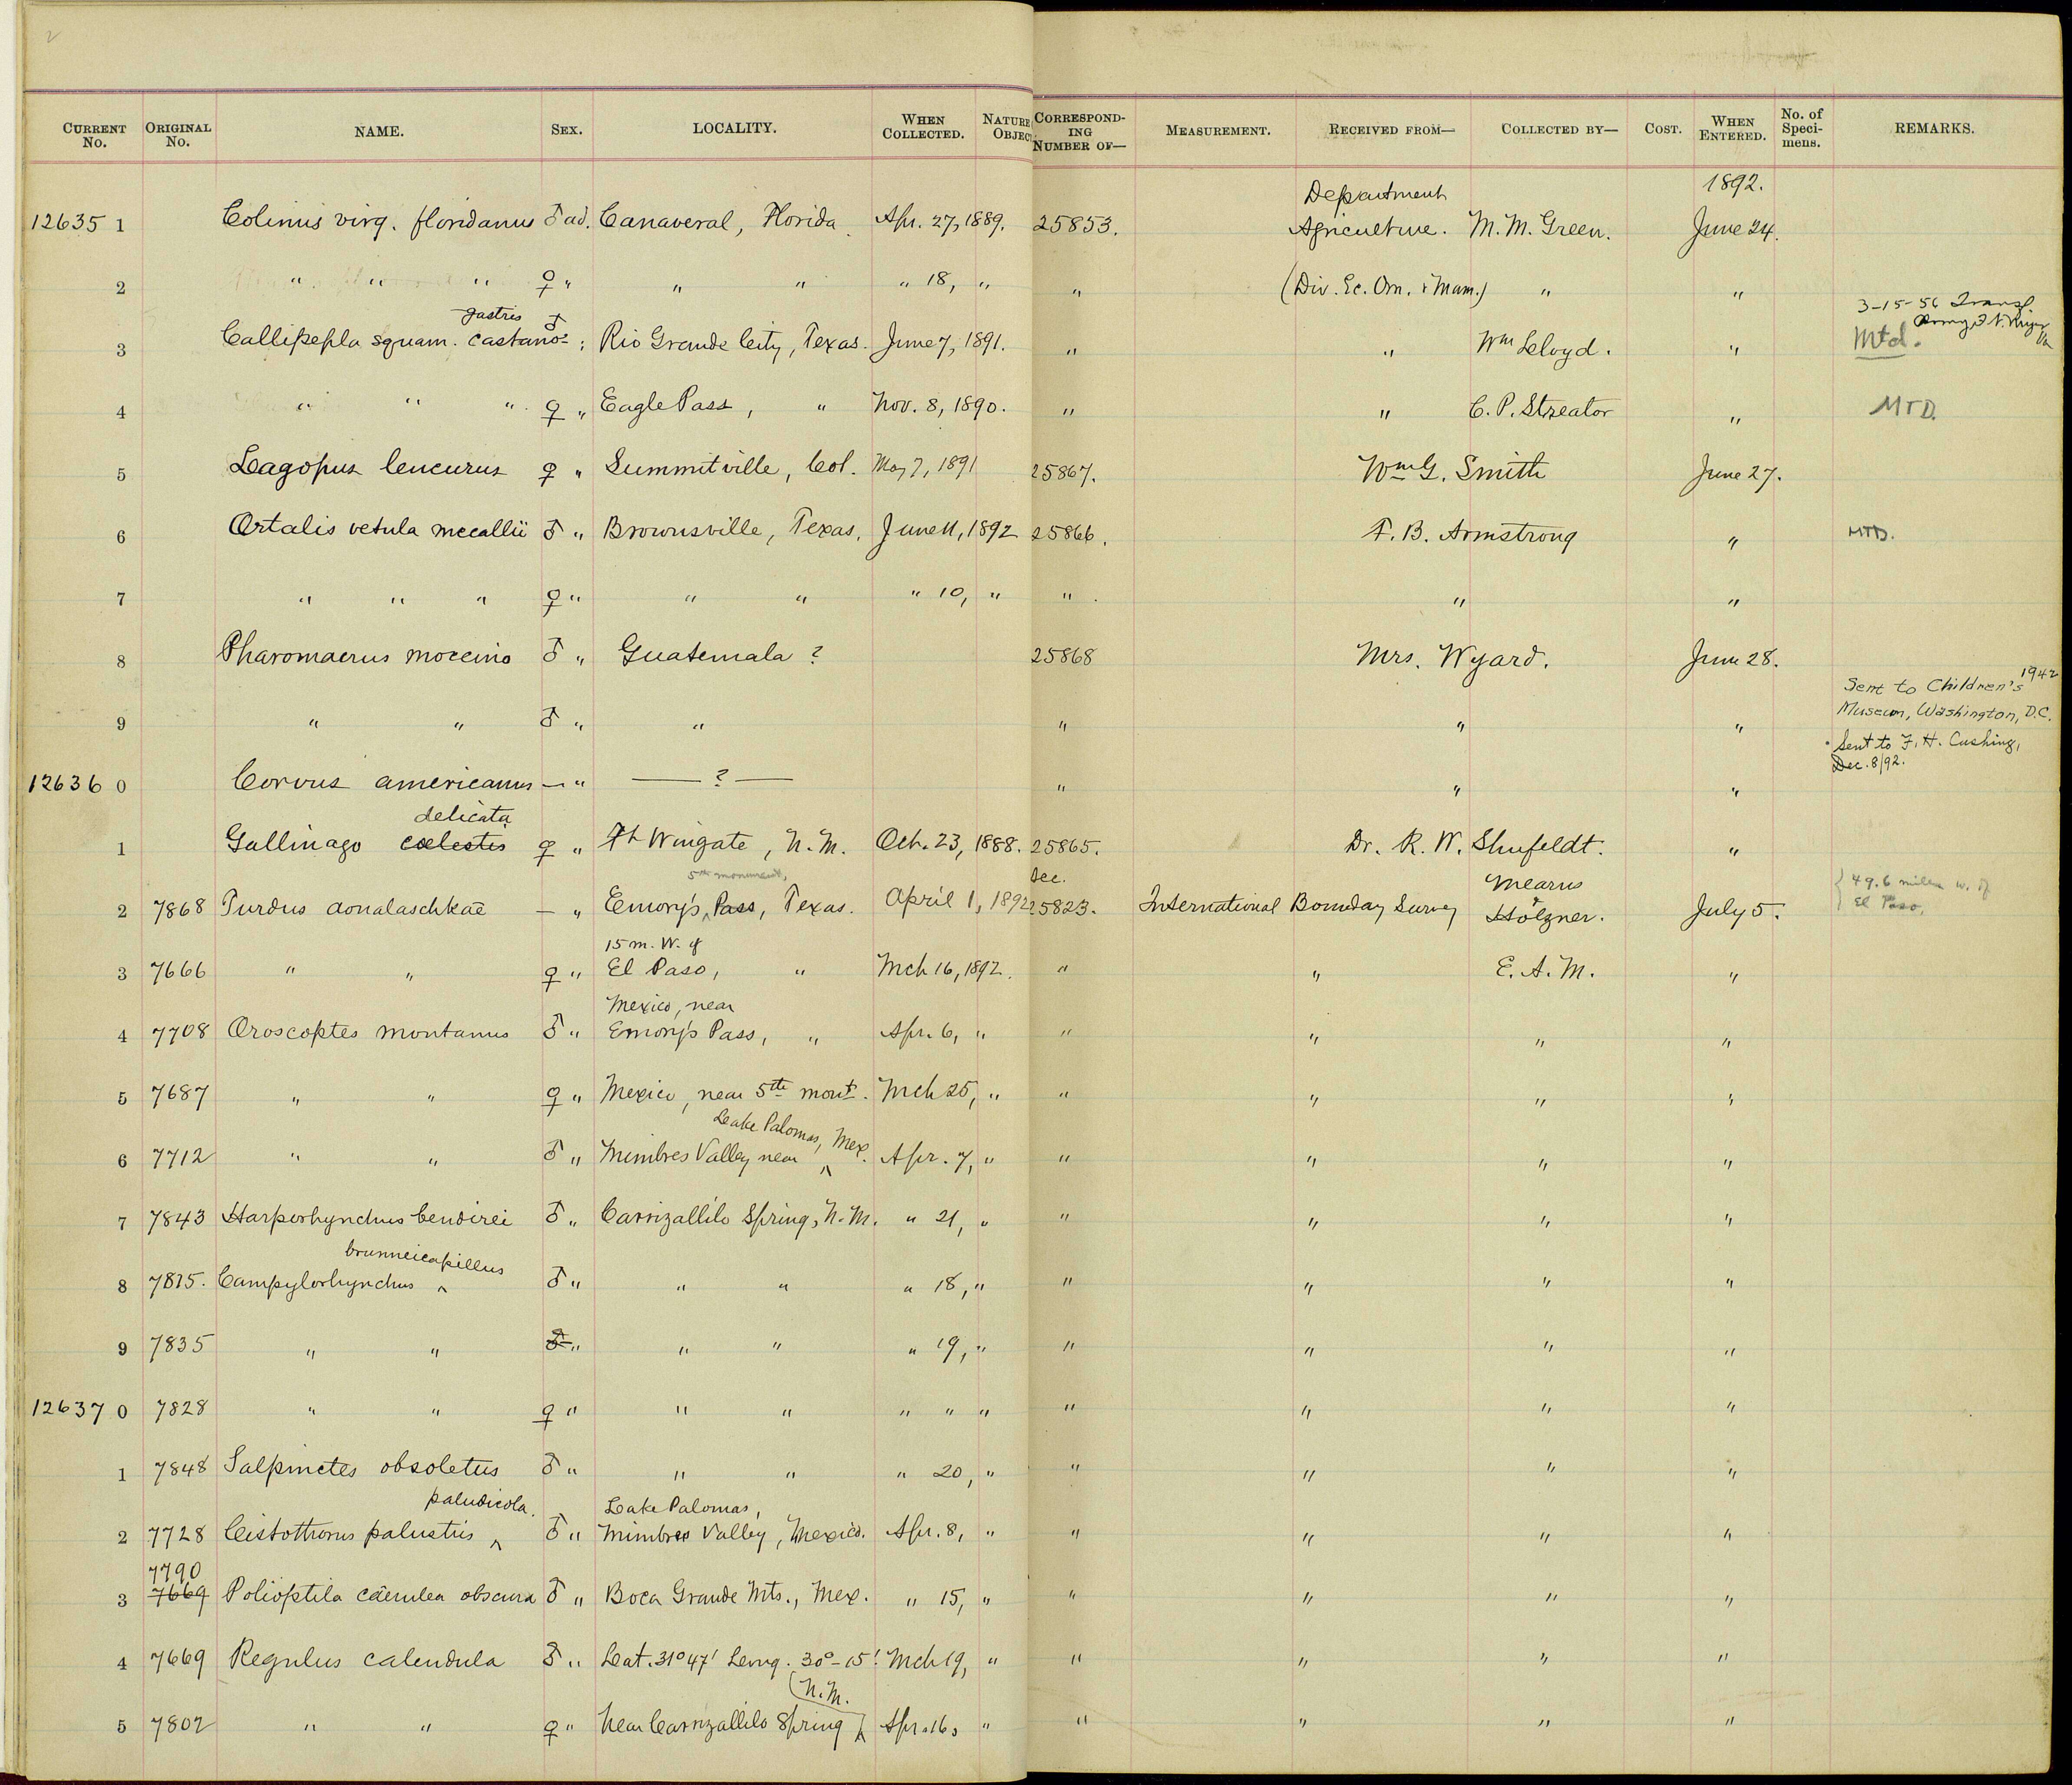 2
CURRENT No. ORIGINAL No. NAME. SEX. LOCALITY. WHEN COLLECTED. NATURE OBJEC CORRESPONDING NUMBER OF— MEASUREMENT. RECEIVED FROM— COLLECTED BY— COST. WHEN ENTERED. No. of Specimens. REMARKS.
Department 1892.
12635 1 Colinus virg. floridanus ♂ ad. Canaveral, Florida. Apr. 27, 1889. 25853. Agriculture. M. M. Green. June 24.
2 " " " ♀ " " " " 18, " " (Div. Ec. Orn. & Mam.) " "
gastris 3-15-56 Transf
3 Callipepla squam. castano- ♂ : Rio Grande City, Texas. June 7, 1891. " " Wm Lloyd. " Mtd.
4 " " " ♀ " Eagle Pass, " Nov. 8, 1890. " " C. P. Streator " MTD.
5 Lagopus leucurus ♀ " Summitville, Col. May 7, 1891 25867. Wm G. Smith June 27.
6 Ortalis vetula mccallii ♂ " Brownsville, Texas, June 11, 1892 25866. F. B. Armstrong " MTD.
7 " " " ♀ " " " " 10, " " " "
8 Pharomacrus moccino ♂ " Guatemala ? 25868 Mrs. Wyard. June 28.
Sent to Children's 1942
Museum, Washington, D.C.
9 " " ♂ " " " " "
Sent to F. H. Cushing,
Dec. 8/92.
12636 0 Corvus americanus — " — ? — " " "
delicata
1 Gallinago coelestis ♀ " Ft Wingate, N. M. Oct. 23, 1888. 25865. Dr. R. W. Shufeldt. "
5th monument, Acc. Mearns {49.6 miles w. of
2 7868 Turdus aonalaschkae — " Emory's Pass, Texas. April 1, 1892 25823. International Bounday Survey & Holzner. July 5. El Paso,
15 m. W. of
3 7666 " " ♀ " El Paso, " Mch 16, 1892. " " E. A. M. "
Mexico, near
4 7708 Oroscoptes montanus ♂ " Emory's Pass, " Apr. 6, " " " " "
5 7687 " " ♀ " Mexico, near 5th mont. Mch 25, " " " " "
Lake Palomas, Mex.
6 7712 " " ♂ " Mimbres Valley near ^ Apr. 7, " " " " "
7 7843 Harporhynchus bendirei ♂ " Carrizallilo Spring, N. M. " 21, " " " " "
brunneicapillus
8 7815. Campylorhynchus ^ ♂ " " " " 18, " " " " "
9 7835 " " ♂ " " " " 19, " " " " "
12637 0 7828 " " ♀ " " " " " " " " " "
1 7848 Salpinctes obsoletus ♂ " " " " 20, " " " " "
paludicola. Lake Palomas,
2 7728 Cistothorus palustris ^ ♂ " Mimbres Valley, Mexico. Apr. 8, " " " " "
7790
3 7669 Polioptila cærulea obscura ♂ " Boca Grande Mts., Mex. " 15, " " " " "
4 7669 Regulus calendula ♂ " Lat. 31° 47' Long. 30°-15' Mch 19, " " " " "
(N. M.
5 7802 " " ♀ " Near Carrizallilo Spring ^ Apr. 16, " " " " "